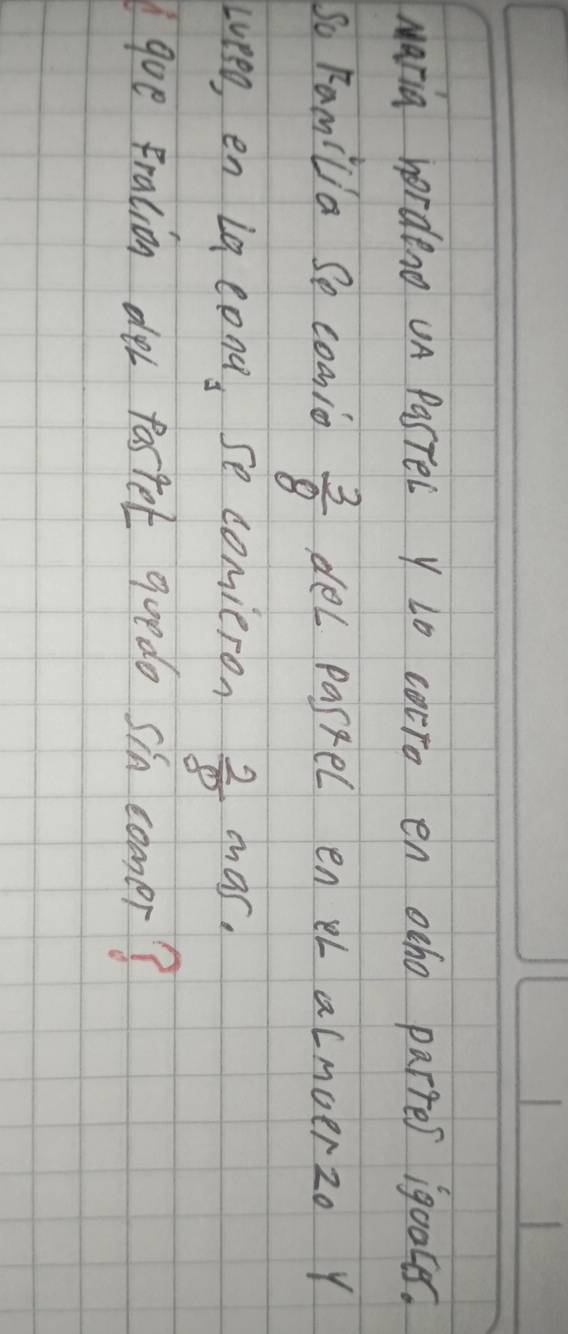 María hordeno un Pastel y lo corto en ocho partes iguales.
Su Familia se comió 3/8 del pastel en el almuerzo y
Luego, en la cena, se comieron 2/8 mas.
¿ que Fración del Pastel quedo sin comer?